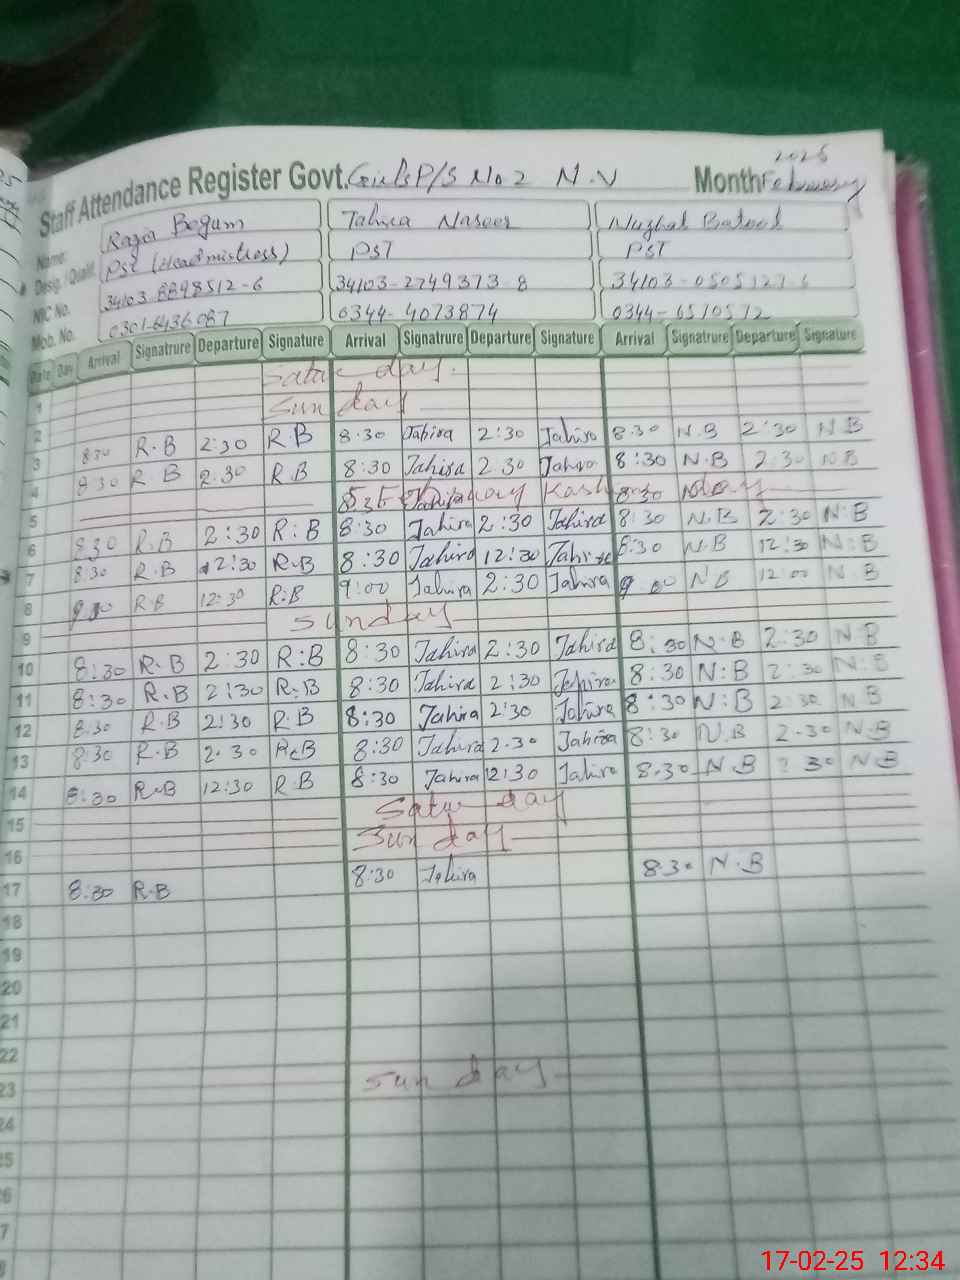 Staff Attendance Register Govt. Girls P/S No. 2 N.V Month February 2025
Name: Razia Begum Tahira Naseer Nuzhat Batool
Desig. / Qualif. PST (Headmistress) PST PST
NIC No. 34103-8898512-6 34103-2749373-8 34103-0505127-6
Mob. No. 0301-6436087 0344-4073874 0344-6510572
Date Day Arrival Signatrure Departure Signature Arrival Signatrure Departure Signature Arrival Signatrure Departure Signature
1 Satur day.
2 Sun day
3 8:30 R.B 2:30 R.B 8:30 Tahira 2:30 Tahira 8:30 N.B 2:30 N B
4 8:30 R.B 2:30 R.B 8:30 Tahira 2:30 Tahira 8:30 N.B 2:30 N B
5 Kashmir day
6 8:30 R.B 2:30 R:B 8:30 Tahira 2:30 Tahira 8:30 N.B 2:30 N:B
7 8:30 R.B 12:30 R.B 8:30 Tahira 12:30 Tahira 8:30 N.B 12:30 N:B
8 R.B 12:30 R:B 9:00 Tahira 2:30 Tahira 9:00 N B 12:00 N.B
9 Sunday
10 8:30 R.B 2:30 R:B 8:30 Tahira 2:30 Tahira 8:30 N.B 2:30 N.B
11 8:30 R.B 2:30 R.B 8:30 Tahira 2:30 Tahira 8:30 N:B 2:30 N:B
12 8:30 R.B 2:30 R.B 8:30 Tahira 2:30 Tahira 8:30 N:B 2:30 N B
13 8:30 R.B 2.30 R.B 8:30 Tahira 2.30 Tahira 8:30 N.B 2.30 N.B
14 8:30 R.B 12:30 R.B 8:30 Tahira 12:30 Tahira 8:30 N.B 30 N B
15 Satur day
16 Sun day
17 8:30 R.B 8:30 Tahira 8:30 N.B
18
19
20
21
22
23 Sun day
24
17-02-25 12:34